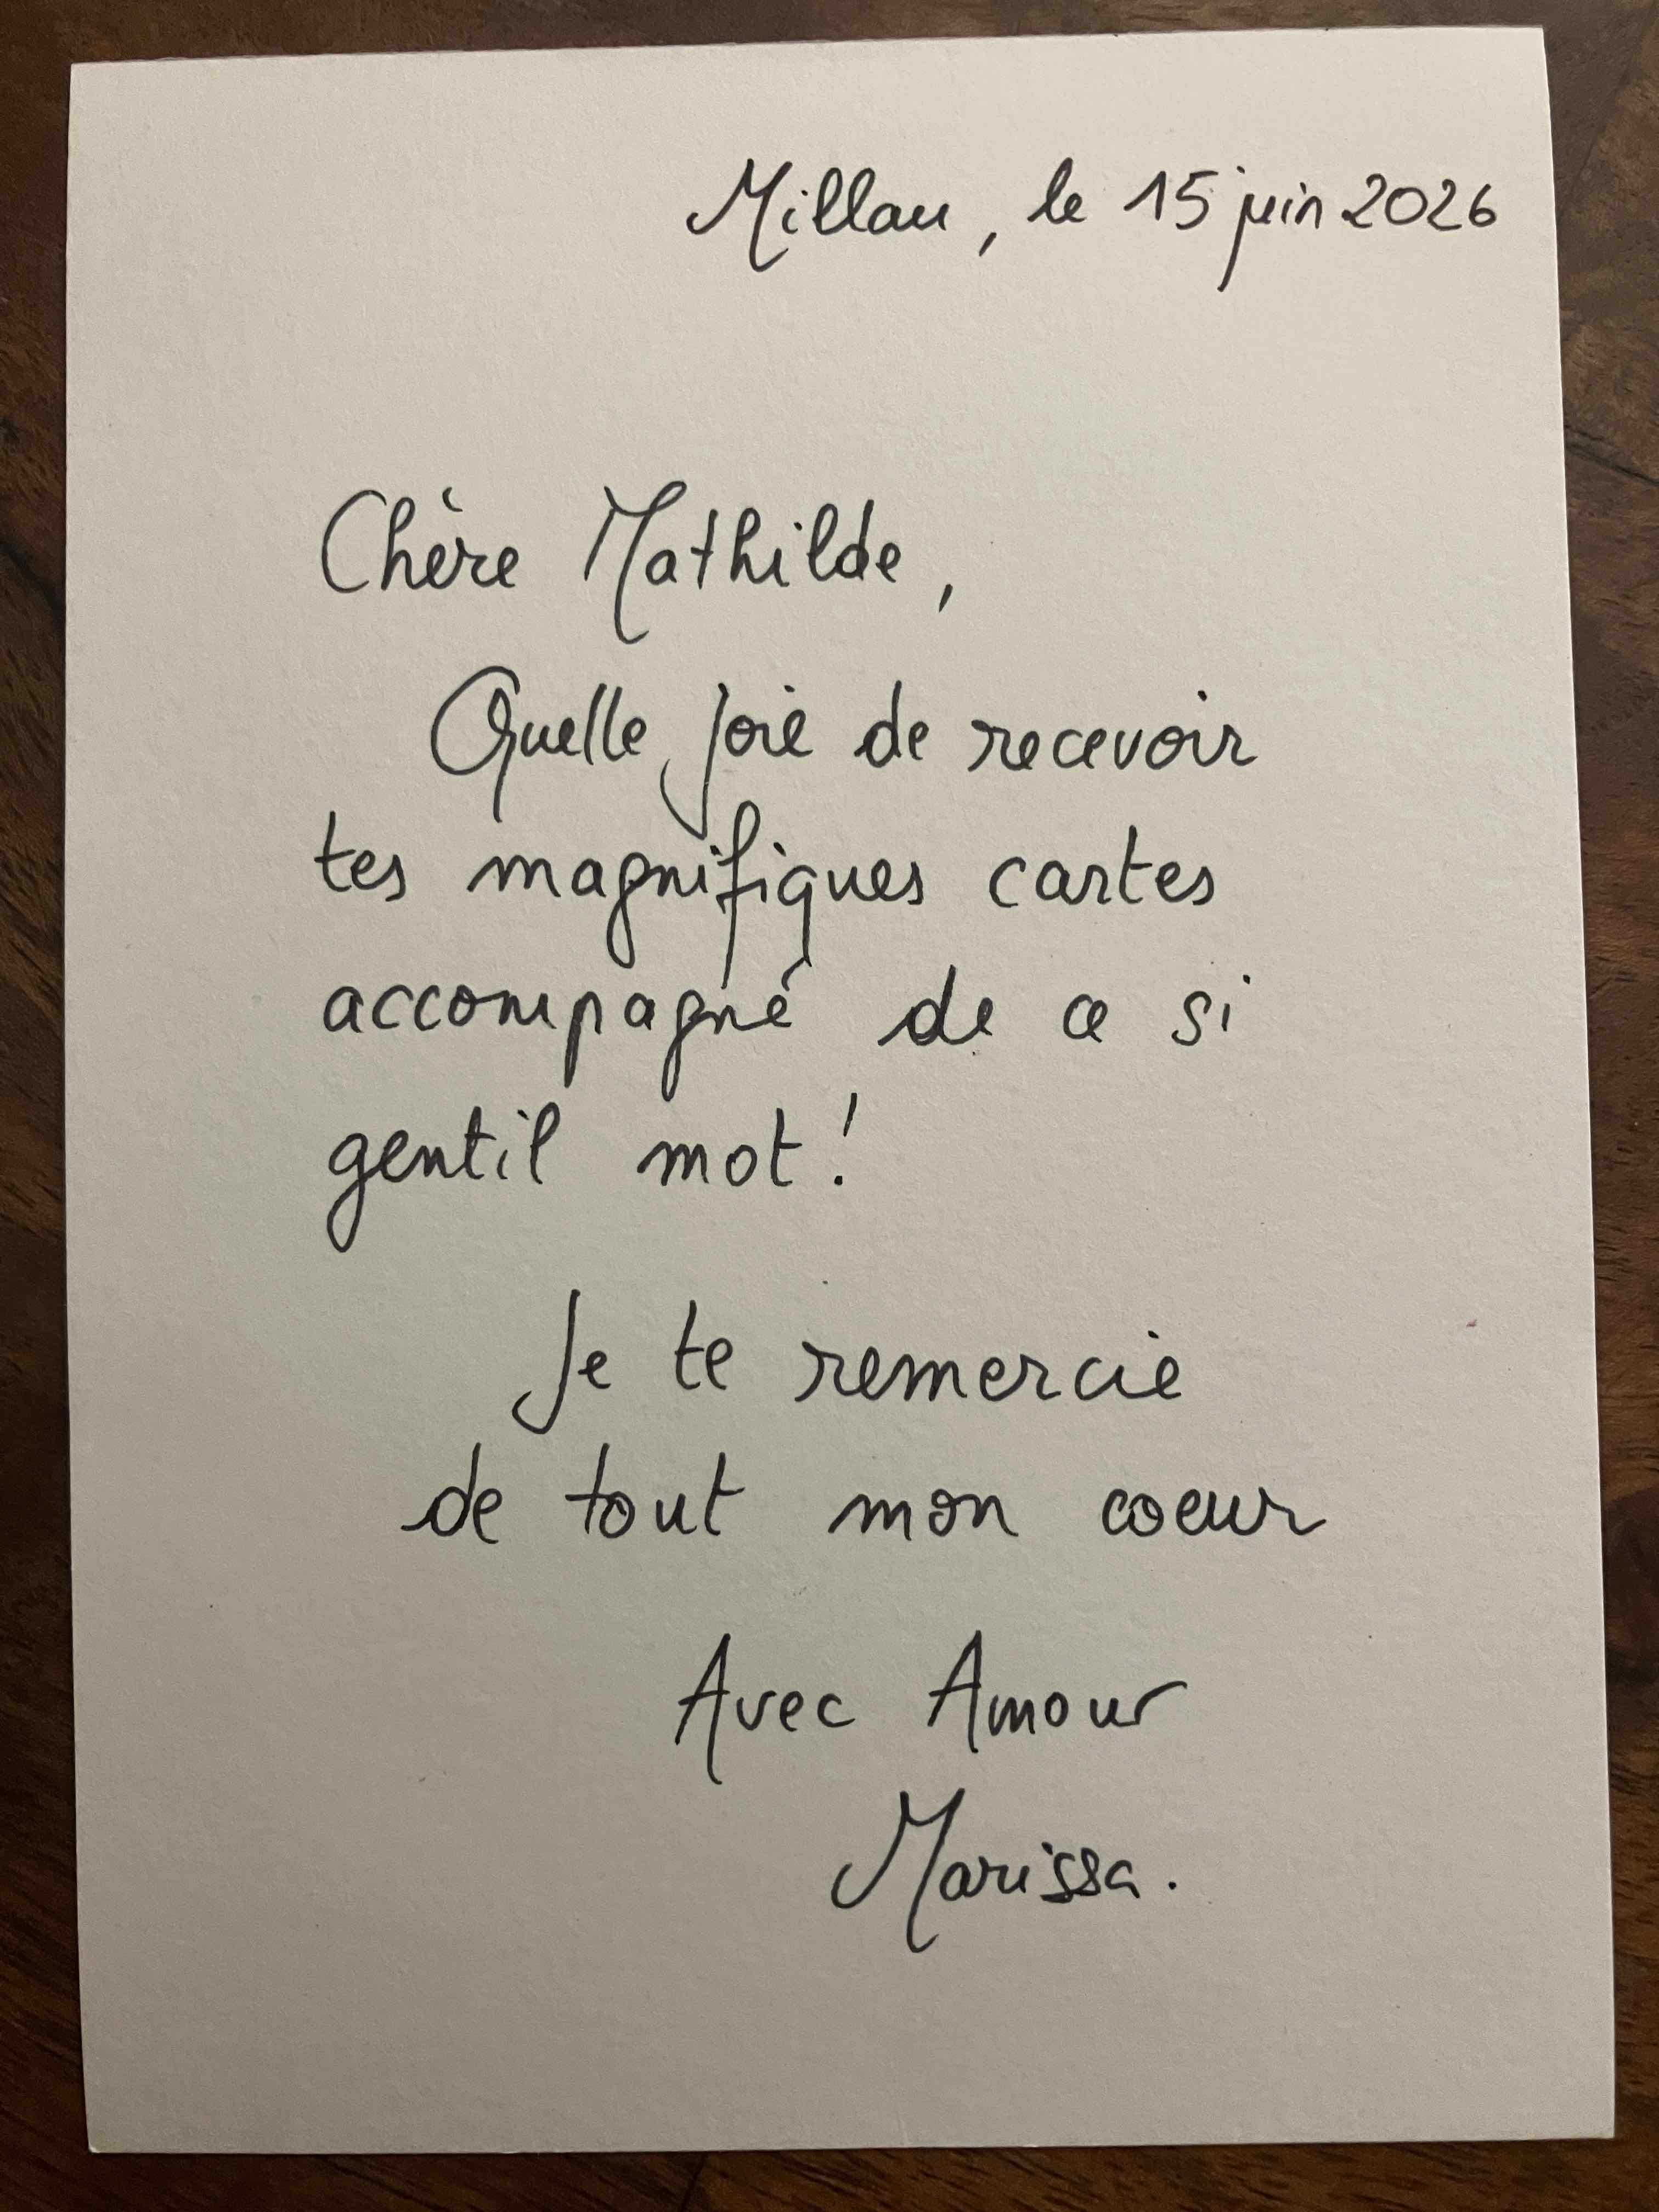 Millau, le 15 juin 2026
Chère Mathilde,
Quelle joie de recevoir
tes magnifiques cartes
accompagné de ce si
gentil mot !
Je te remercie
de tout mon coeur
Avec Amour
Marissa.